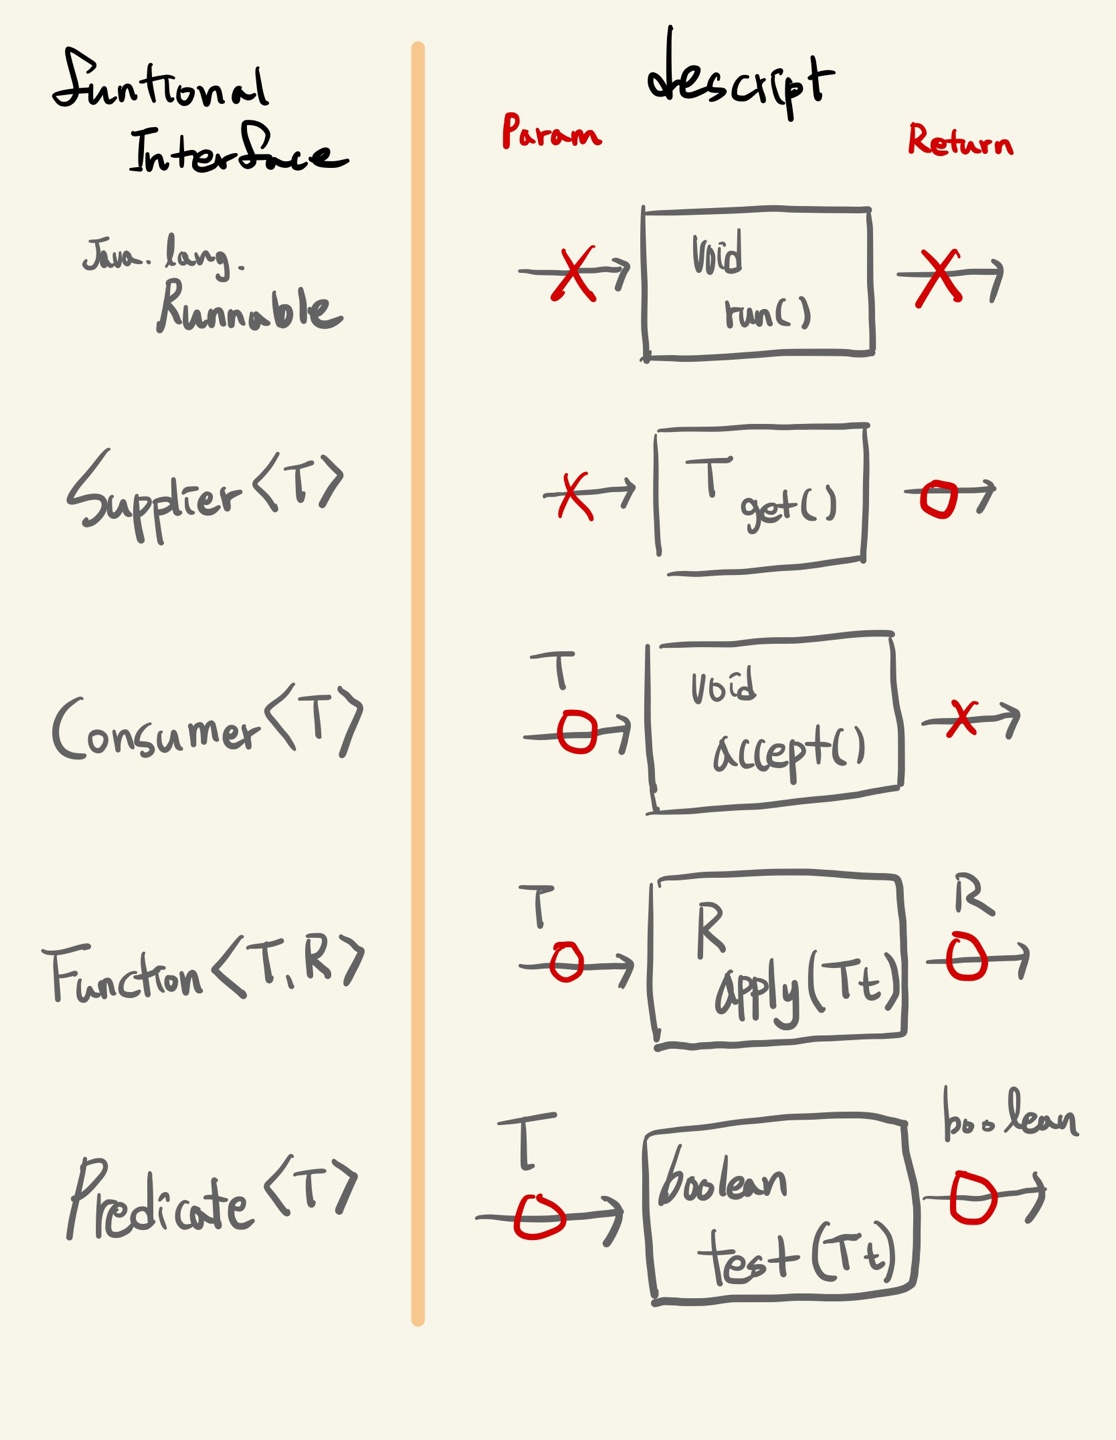 funtional
Interface
descript
Param
Return
Java. lang.
Runnable
void
run()
Supplier<T>
T
get()
Consumer<T>
T
void
accept()
Function<T,R>
T
R
apply(Tt)
R
Predicate<T>
T
boolean
test(Tt)
boolean